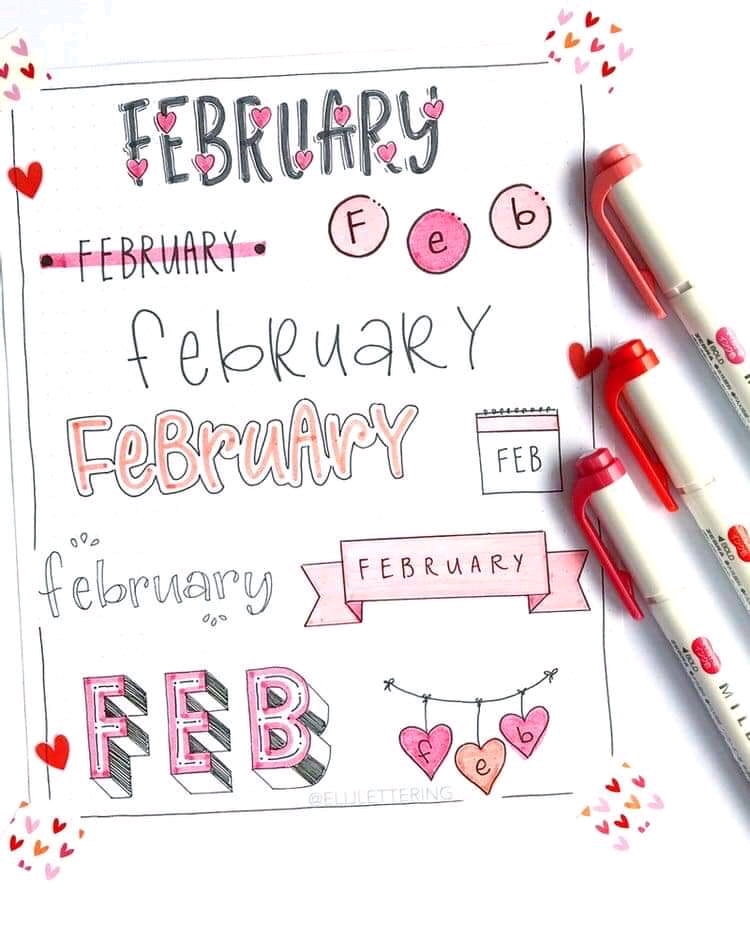 FEBRUARY
F e b
FEBRUARY
febRuaRY
FeBruArY
FEB
february
FEBRUARY
FEB
f e b
@ELIJLETTERING
BOLD
BOLD
BOLD